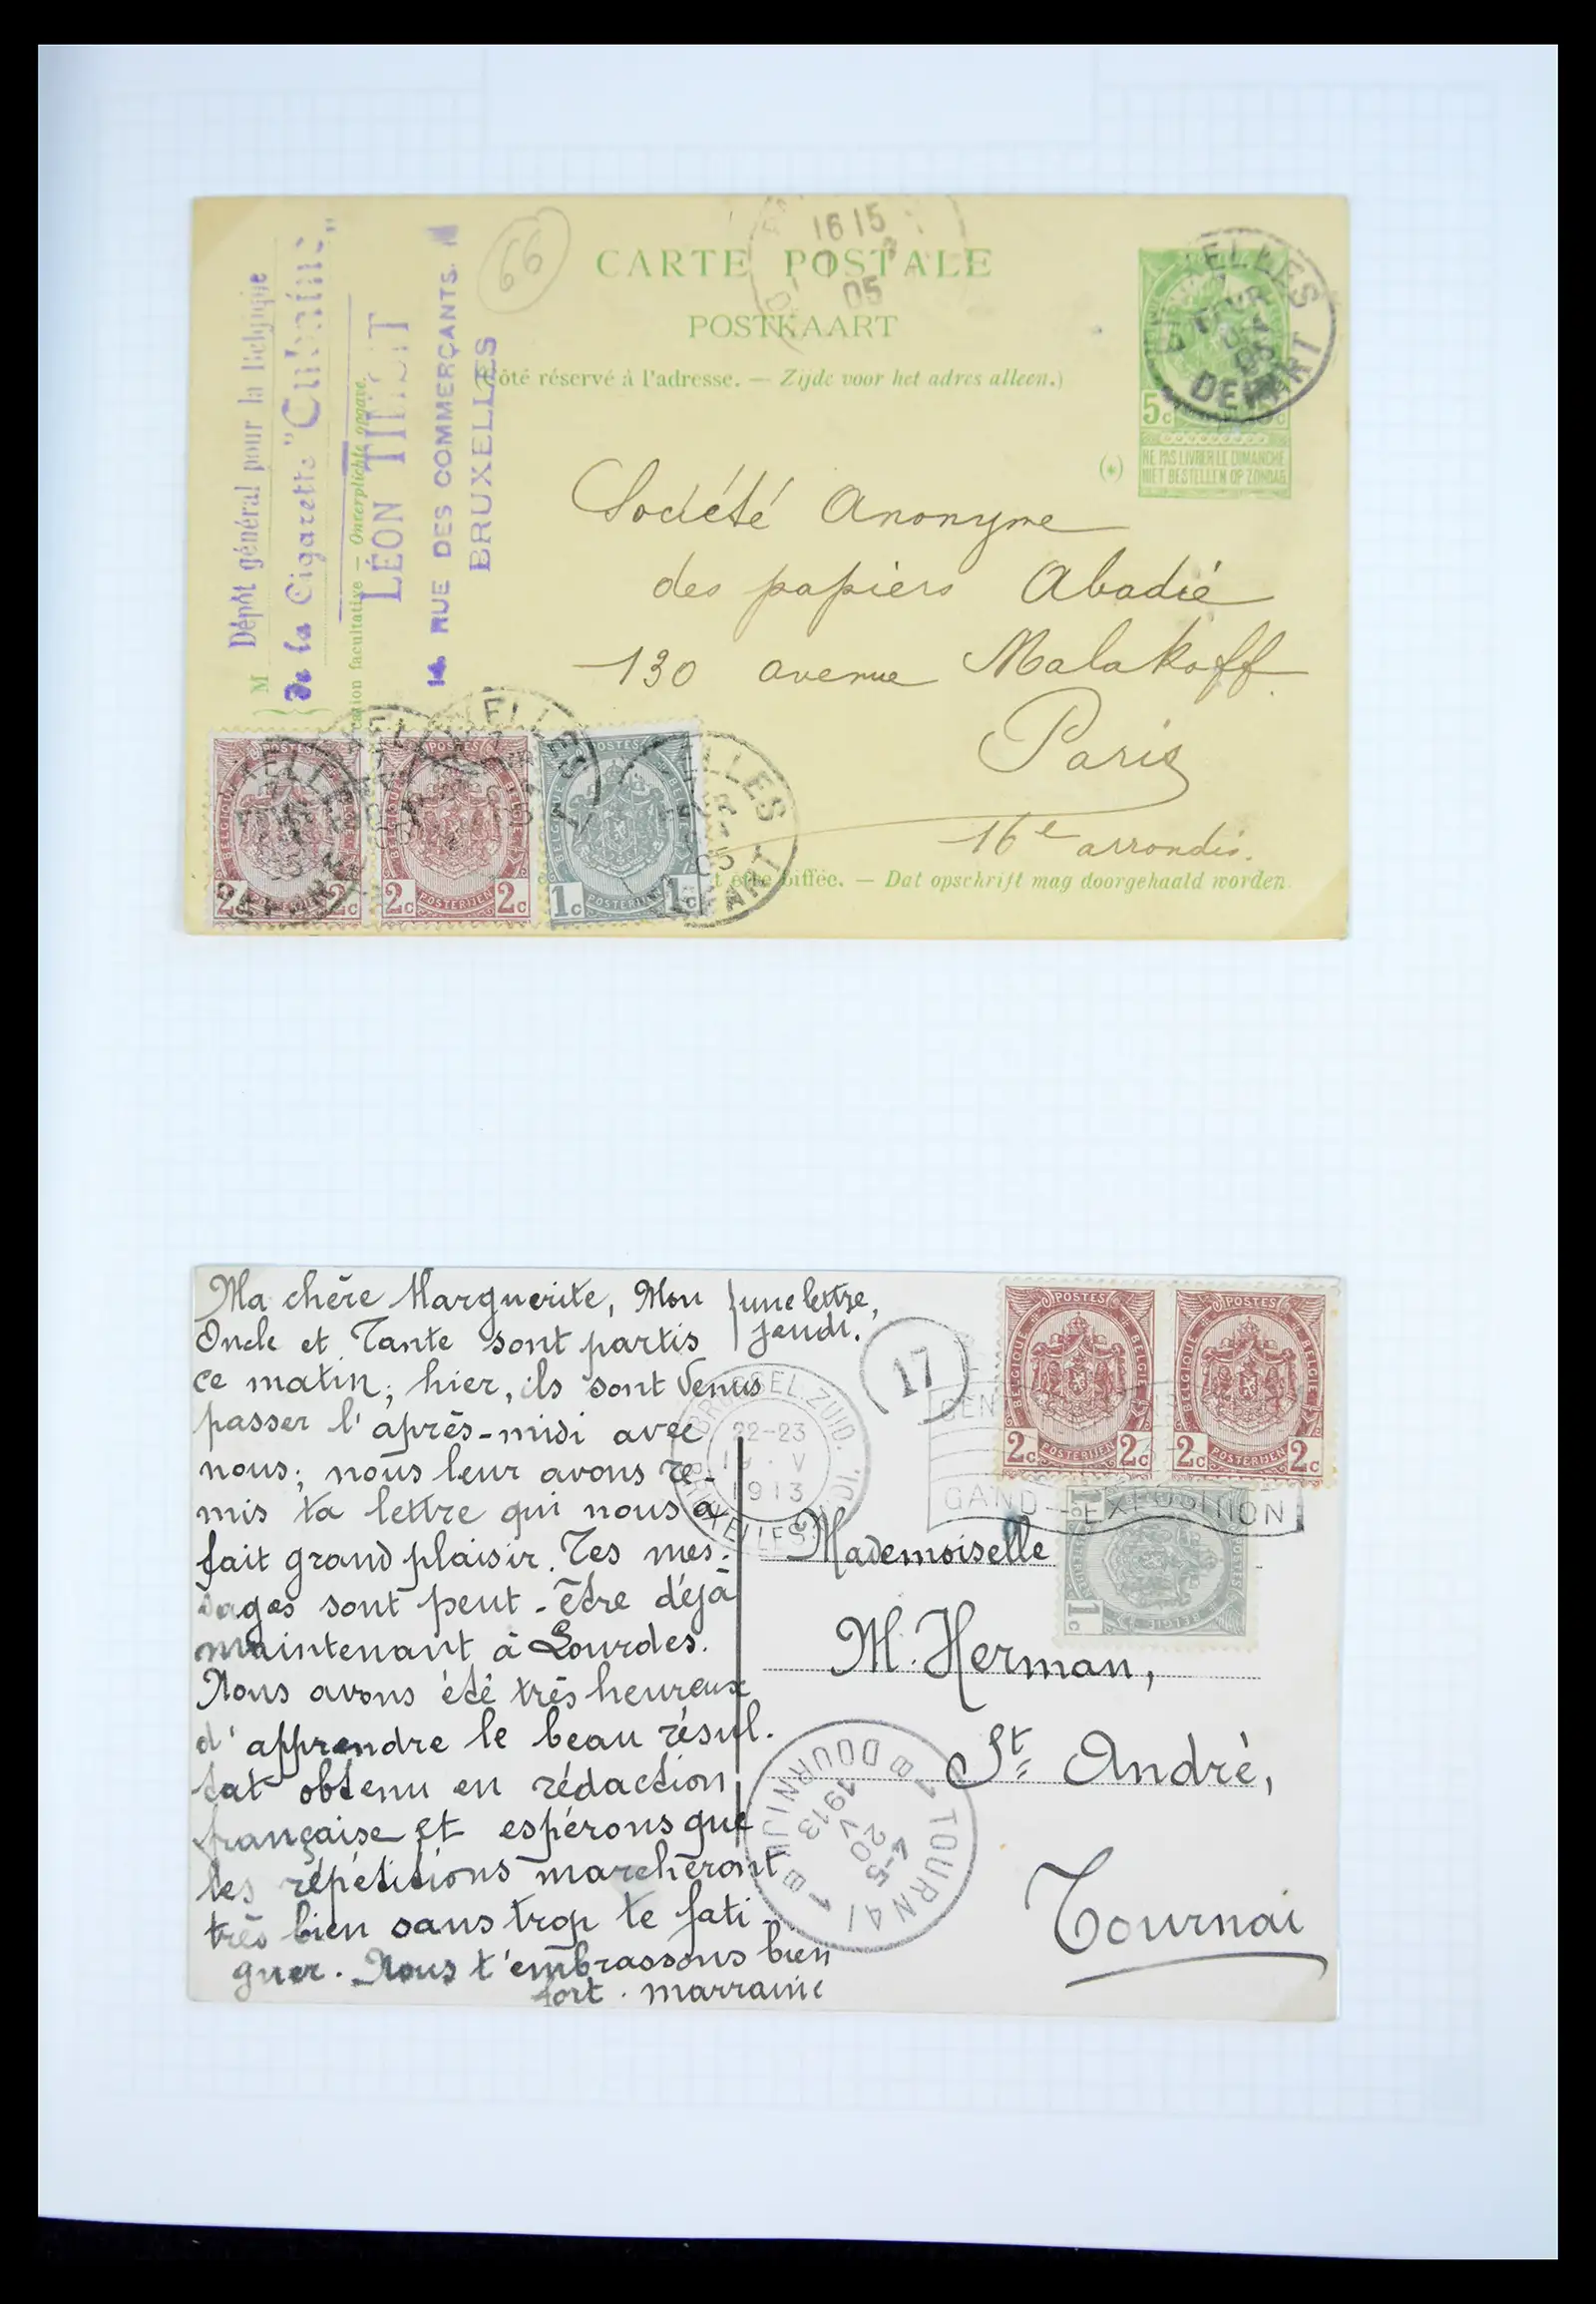 66
CARTE POSTALE
POSTKAART
16 15
05
ôté réservé à l'adresse. — Zijde voor het adres alleen.)
M
Dépôt général pour la Belgique
de la Cigarette
cation facultative — Onverplichte opgave.
LÉON
14. RUE DES COMMERÇANTS.
BRUXELLES
5c
NE PAS LIVRER LE DIMANCHE
NIET BESTELLEN OP ZONDAG
(*)
Société Anonyme
des papiers Abadié
130 avenue Malakoff
Paris
16e arrondis.
POSTES
BELGIQUE
BELGIE
2c 2c
POSTES
BELGIQUE
BELGIE
2c POSTERIJEN 2c
POSTES
BELGIQUE
1c POSTERIJEN 1c
biffée. — Dat opschrift mag doorgehaald worden.
Ma chère Marguerite, Mon
Oncle et Tante sont partis
ce matin; hier, ils sont venus
passer l'après-midi avec
nous; nous leur avons re-
mis ta lettre qui nous a
fait grand plaisir. Tes mes-
sages sont peut-être déjà
maintenant à Lourdes.
Nous avons été très heureux
d'apprendre le beau résul-
tat obtenu en rédaction
française et espérons que
les répétitions marcheront
très bien sans trop te fati-
guer. Nous t'embrassons bien
fort. marraine
une lettre,
jeudi.
17
BRUSSEL.ZUID.
22-23
19 V
1913
BRUXELLES
GEN
GAND-EXPOSITION
POSTES
BELGIQUE
BELGIE
2c POSTERIJEN 2c
POSTES
BELGIQUE
BELGIE
2c POSTERIJEN 2c
POSTES
BELGIE
1c
1c
Mademoiselle
M. Herman,
St André,
Tournai
1 TOURNAI 1
B DOORNIJK B
4-5
20
V
1913